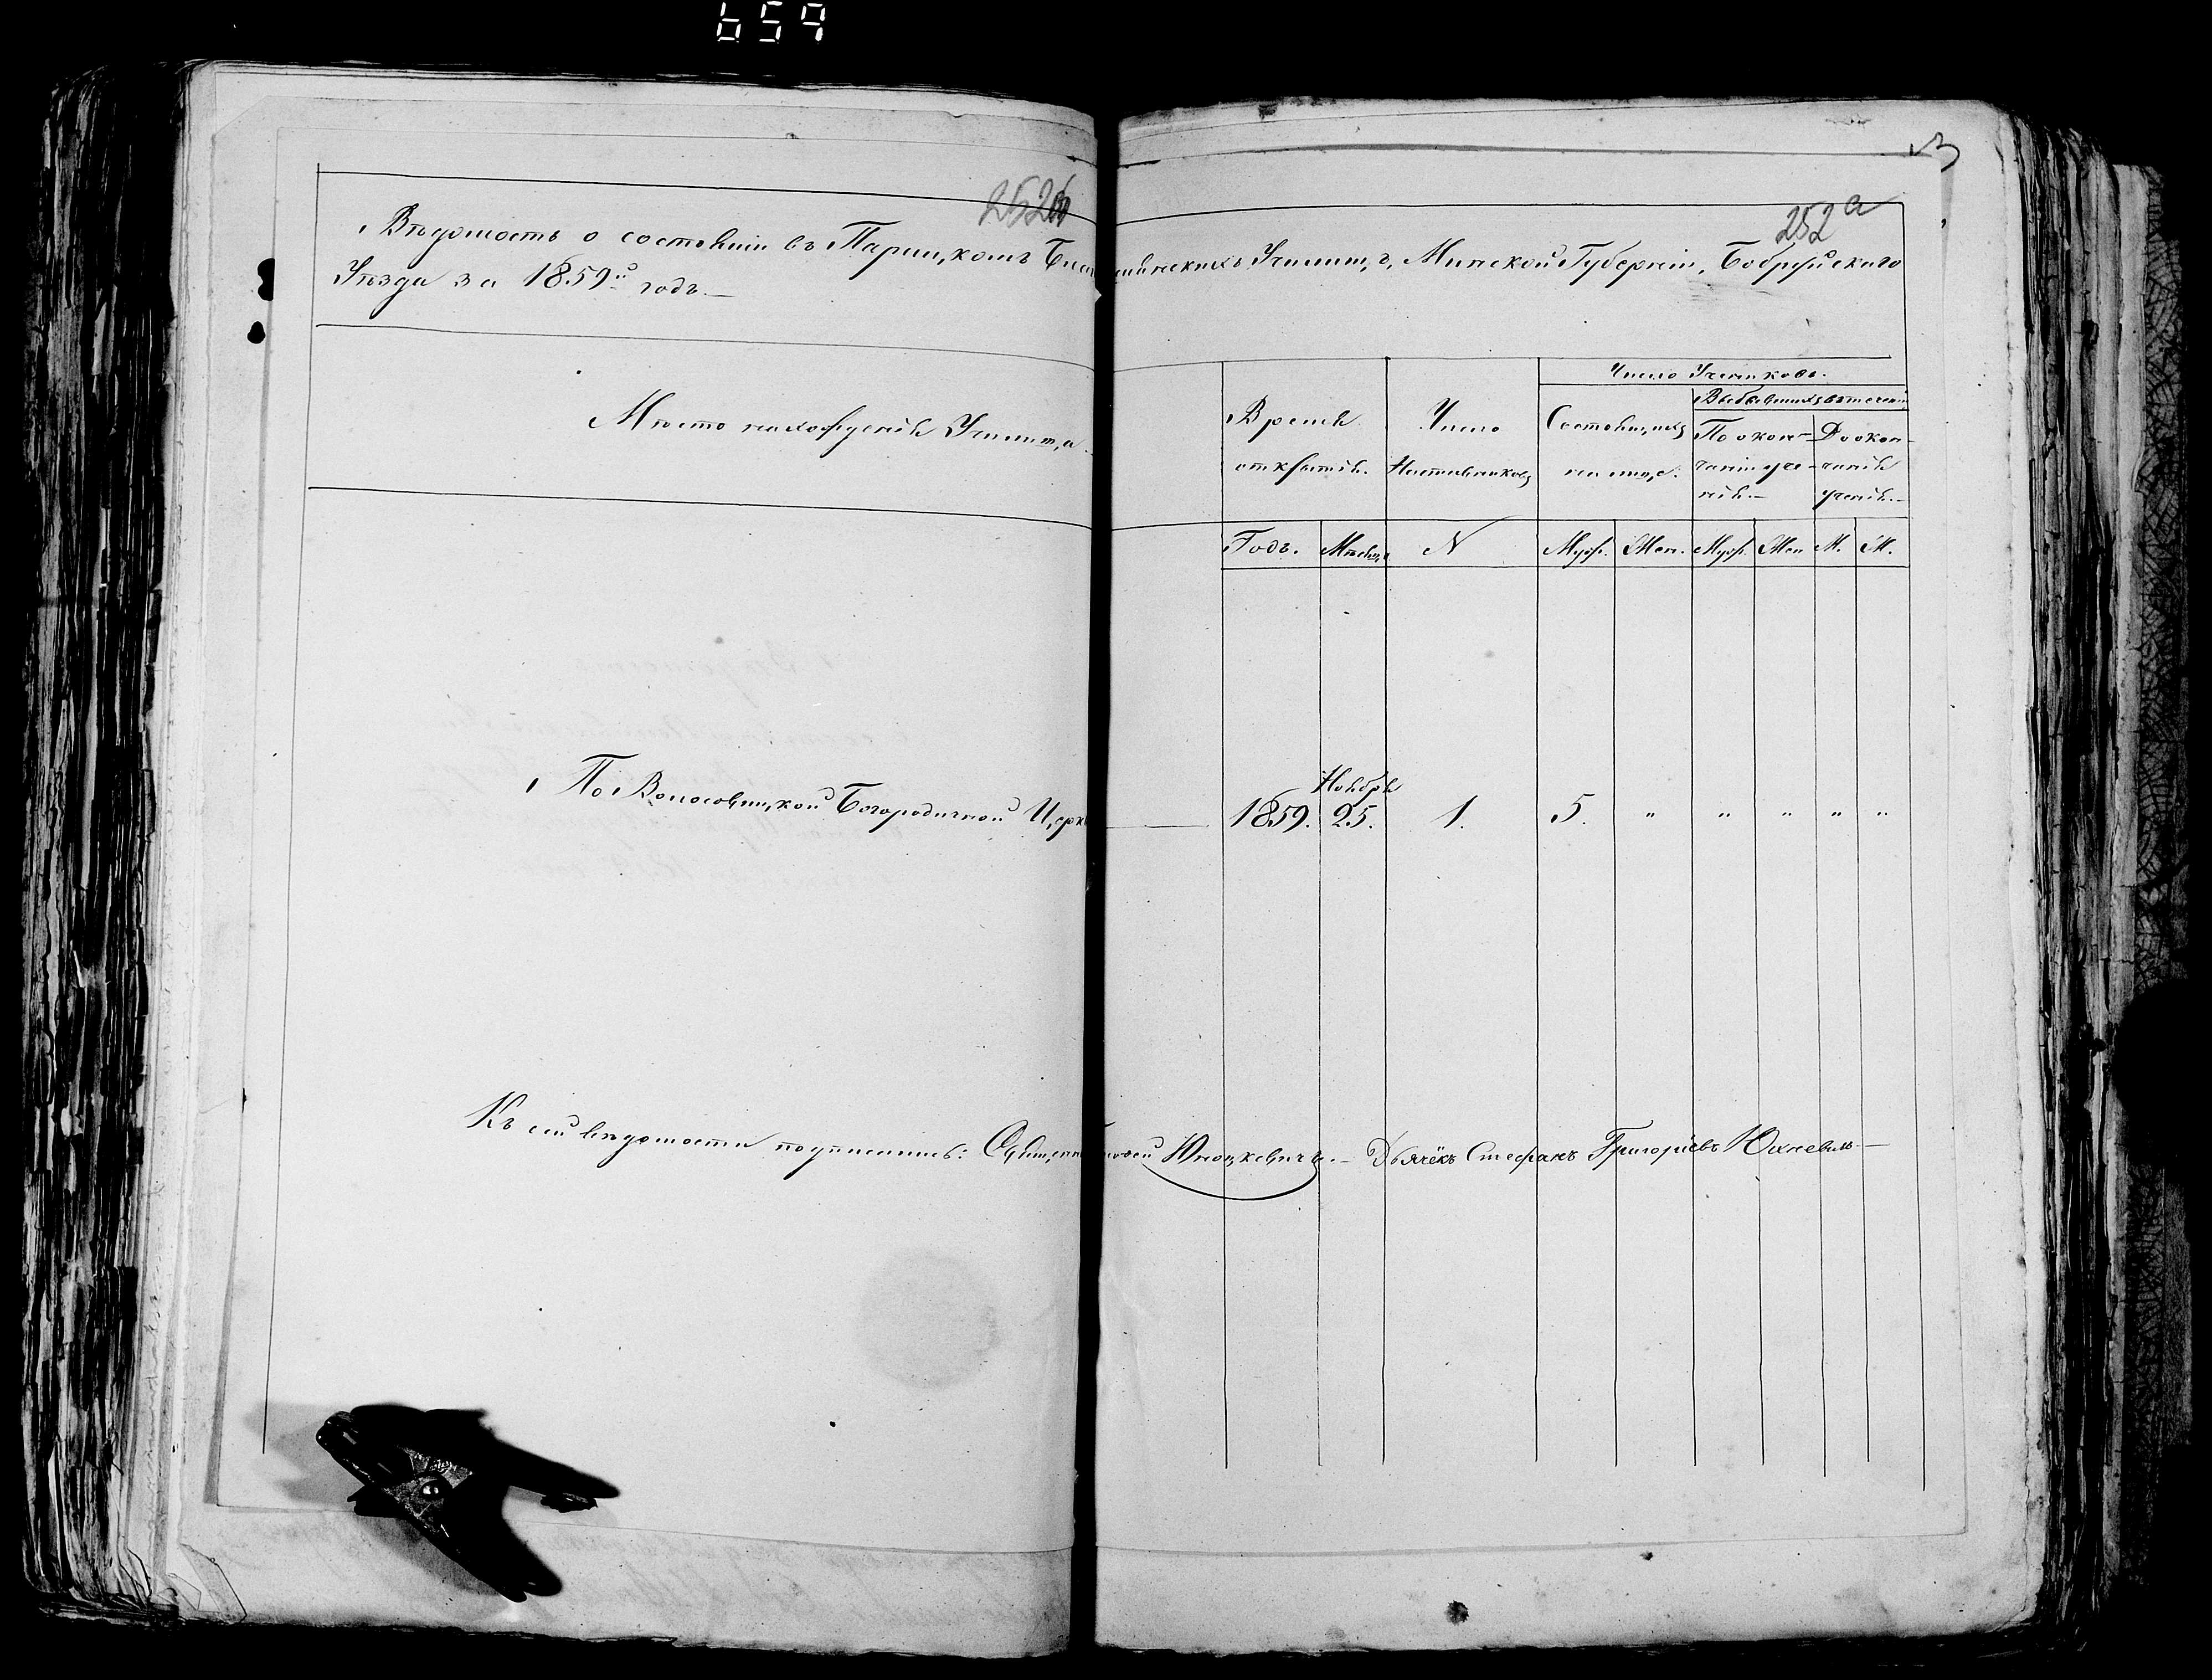 659
252б
252 а
3
Вѣдомость о состоящихъ въ Парицкомъ Благочиніи Училищъ, Минской Губерніи, Бобруйскаго
Уѣзда за 1859й годъ.—
Мѣсто нахожденія Училища.
Время открытія.
Число Наставниковъ
Число Учениковъ.
Состоящихъ на лицо.
Выбывшихъ въ теченіи
По окончаніи ученія.—
До окончанія ученія.—
Годъ. Мѣсяцъ N Муж. Жен. Муж. Жен М. Ж.
По Волосовицкой Богородичной Церкви — 1859. Ноября 25. 1. 5. " " " " "
Къ сей вѣдомости подписались: Священникъ Юноцкевичъ.— Дьячёкъ Стефанъ Григоріевъ Юхневичъ—